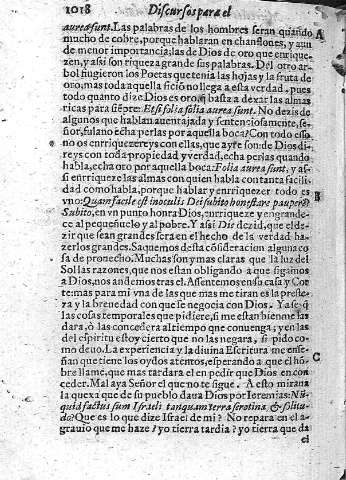 1018 Discursos para el
aurea sunt. Las palabras de los hombres seran quando A
mucho de cobre, porque hablaran en chanflones, y aun
de menor importancia; las de Dios de oro que enrique-
zen, y assi son riqueza grande sus palabras. Del otro ar-
bol fingieron los Poetas que tenia las hojas y la fruta de
oro, mas toda aquella ficiõ no llega a esta verdad, pues
todo quanto dize Dios es oro, q̃ basta a dexar las almas
ricas para siẽpre: Et si folia folia aurea sunt. No dezis de
algunos que hablan auentajada y sentenciosamente, se-
ñor, fulano echa perlas por aquella boca? Con todo esso
no os enrriquezereys con ellas, que ayre son: de Dios di-
reys con toda propiedad y verdad, echa perlas quando
habla, echa oro por aquella boca: Folia aurea sunt, y as-
si enrriqueze las almas con quien habla con tanta facili-
dad como habla, porque hablar y enrriquezer todo es
vno: Quam facile est in oculis Dei subito honestare pauperẽ. B
Subito, en vn punto honra Dios, enrriqueze y engrande-
ce al pequeñuelo y al pobre. Y assi Die dezid, que el de-
zir que sean grandes sera en el hecho de la verdad ha-
zerlos grandes. Saquemos desta cõsideracion alguna co
sa de prouecho. Muchas son y mas claras que la luz del
Sol las razones, que nos estan obligando a que sigamos
a Dios, nos andemos tras el. Assentemos en su casa y Cor
te: mas para mi vna de las que mas me tiran es la preste-
za y la breuedad con que se negocia con Dios. Ya se q̃
las cosas temporales que pidiere, si me estan bien me las
dara, ò las concedera al tiempo que conuenga; y en las
del espiritu estoy cierto que no las negara, si pido co-
mo deuo. La experiencia y la diuina Escritura me ense- C
ñan que tiene los oydos atentos, esperando a que el hõ-
bre llame, que mas tardara el en pedir que Dios en con
ceder. Mal aya Señor el que no te sigue. A esto mira na
la quexa que de su pueblo daua Dios por Ieremias: Nũ-
quid factus sum Israeli tanquam terra serotina, & solitu-
do? Que es lo que dize Israel de mi? No repara en el a-
grauio que me haze? yo tierra tardia? yo tierra que da
el